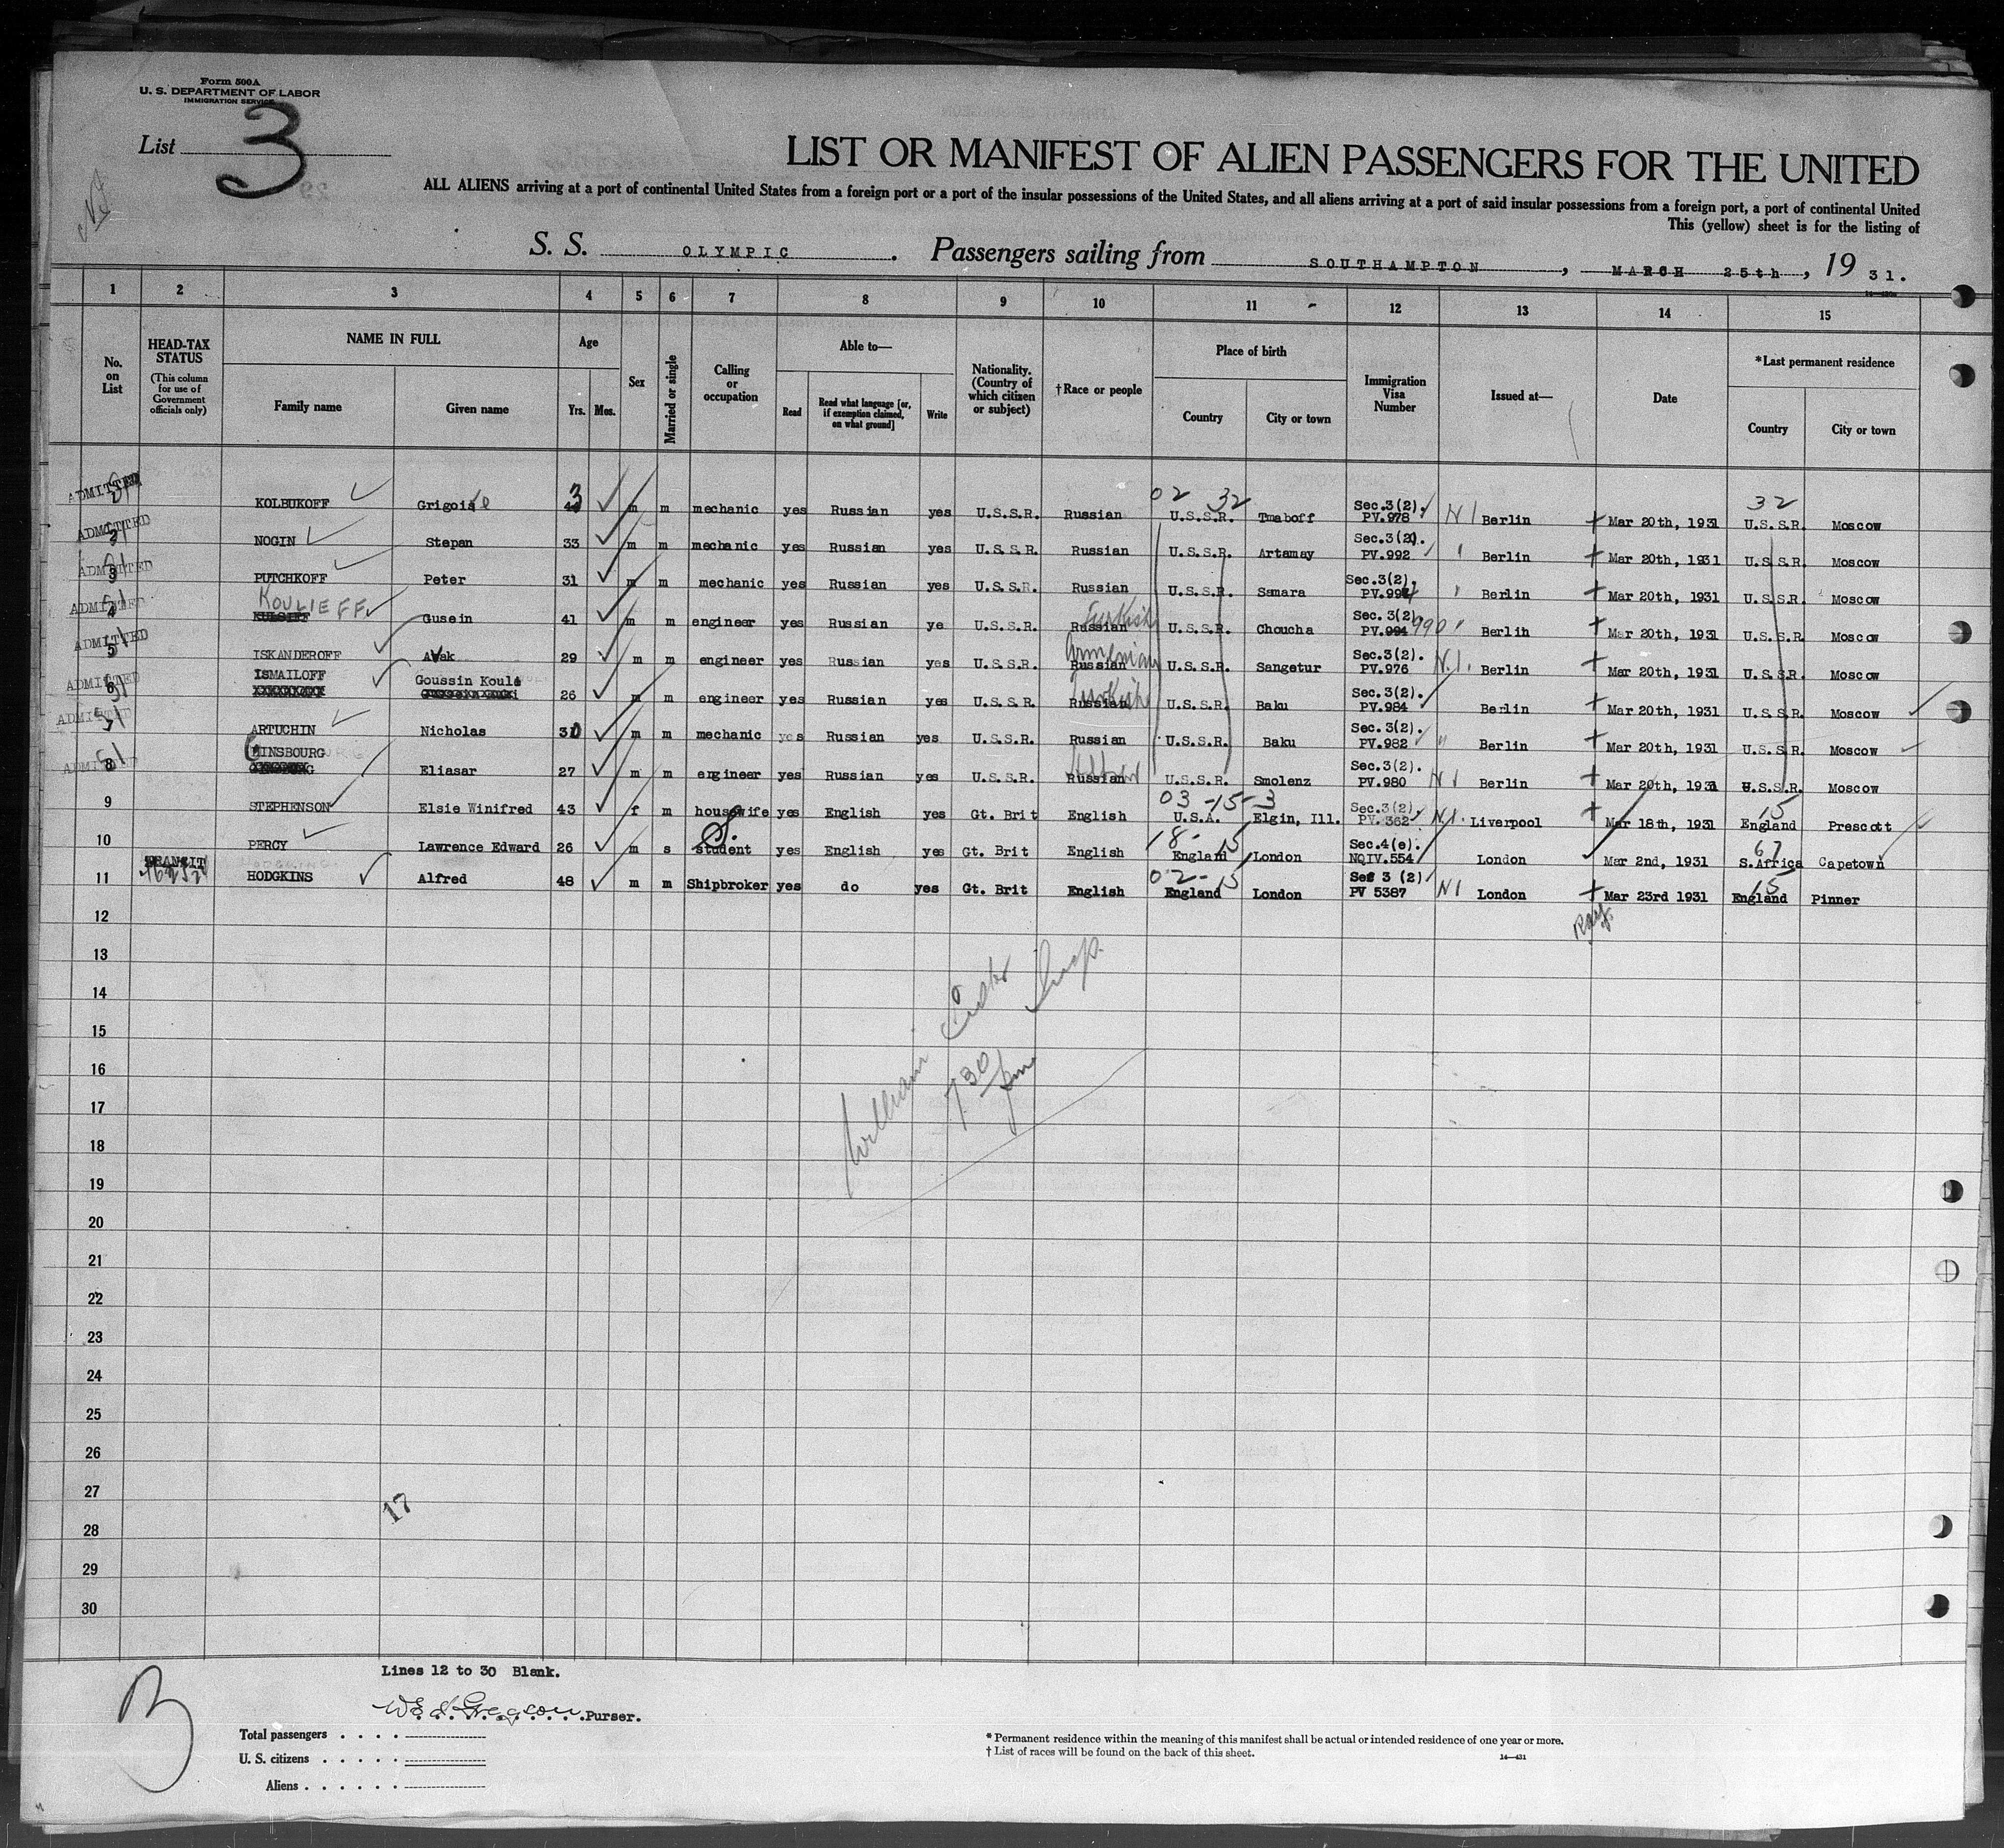 Form 500A
U. S. DEPARTMENT OF LABOR
IMMIGRATION SERVICE
List 3
LIST OR MANIFEST OF ALIEN PASSENGERS FOR THE UNITED
ALL ALIENS arriving at a port of continental United States from a foreign port or a port of the insular possessions of the United States, and all aliens arriving at a port of said insular possessions from a foreign port, a port of continental United
This (yellow) sheet is for the listing of
S. S. OLYMPIC. Passengers sailing from SOUTHAMPTON, MARCH 25th, 1931.
1 2 3 4 5 6 7 8 9 10 11 12 13 14 15
No. on List
HEAD-TAX STATUS
(This column for use of Government officials only)
NAME IN FULL
Family name Given name
Age
Yrs. Mos.
Sex
Married or single
Calling or occupation
Able to—
Read
Read what language [or, if exemption claimed, on what ground]
Write
Nationality. (Country of which citizen or subject)
†Race or people
Place of birth
Country City or town
Immigration Visa Number
Issued at—
Date
*Last permanent residence
Country City or town
02 32 32
ADMITTED KOLBUKOFF m m mechanic yes Russian yes U.S.S.R. Russian U.S.S.R. Tmaboff Sec.3(2). PV.978 N I Berlin Mar 20th, 1931 U.S.S.R. Moscow
ADMITTED 2 NOGIN Stepan 33 m m mechanic yes Russian yes U.S.S.R. Russian U.S.S.R. Artamay Sec.3(2). PV.992 " Berlin Mar 20th, 1931 U.S.S.R. Moscow
ADMITTED 3 PUTCHKOFF Peter 31 m m mechanic yes Russian yes U.S.S.R. Russian U.S.S.R. Samara Sec.3(2). PV.994 " Berlin Mar 20th, 1931 U.S.S.R. Moscow
KOULIEFF Turkish
ADMITTED 4 Gusein 41 m m engineer yes Russian ye U.S.S.R. Russian U.S.S.R. Choucha Sec.3(2). PV.994 990 " Berlin Mar 20th, 1931 U.S.S.R. Moscow
Armenian
ADMITTED 5 ISKANDEROFF Avak 29 m m engineer yes Russian yes U.S.S.R. Russian U.S.S.R. Sangetur Sec.3(2). PV.976 N.I. Berlin Mar 20th, 1931 U.S.S.R. Moscow
Turkish
ADMITTED 6 ISMAILOFF Goussin Koule 26 m m engineer yes Russian yes U.S.S.R. Russian U.S.S.R. Baku Sec.3(2). PV.984 Berlin Mar 20th, 1931 U.S.S.R. Moscow
ADMITTED 7 ARTUCHIN Nicholas m m mechanic yes Russian yes U.S.S.R. Russian U.S.S.R. Baku Sec.3(2). PV.982 " Berlin Mar 20th, 1931 U.S.S.R. Moscow
Hebrew
ADMITTED 8 GINSBOURG Eliasar 27 m m engineer yes Russian yes U.S.S.R. Russian U.S.S.R. Smolenz Sec.3(2). PV.980 N I Berlin Mar 20th, 1931 U.S.S.R. Moscow
03 -15-3 15
9 STEPHENSON Elsie Winifred 43 f m housewife yes English yes Gt. Brit English U.S.A. Elgin, Ill. Sec.3(2) PV.362 N.I. Liverpool Mar 18th, 1931 England Prescott
S. 18- 15 67
10 PERCY Lawrence Edward 26 m s student yes English yes Gt. Brit English England London Sec.4(e). NQIV.554 London Mar 2nd, 1931 S.Africa Capetown
TRANSIT
02-15 15
11 HODGKINS Alfred 48 m m Shipbroker yes do yes Gt. Brit English England London 3 (2) PV 5387 N I London Mar 23rd 1931 England Pinner
12
13
14
15
16
17
18
19
20
21
22
23
24
25
26
27
28
29
30
William
Insp.
7 30 pm
17
Lines 12 to 30 Blank.
Purser.
B
Total passengers
U. S. citizens
Aliens
* Permanent residence within the meaning of this manifest shall be actual or intended residence of one year or more.
† List of races will be found on the back of this sheet.
14—431